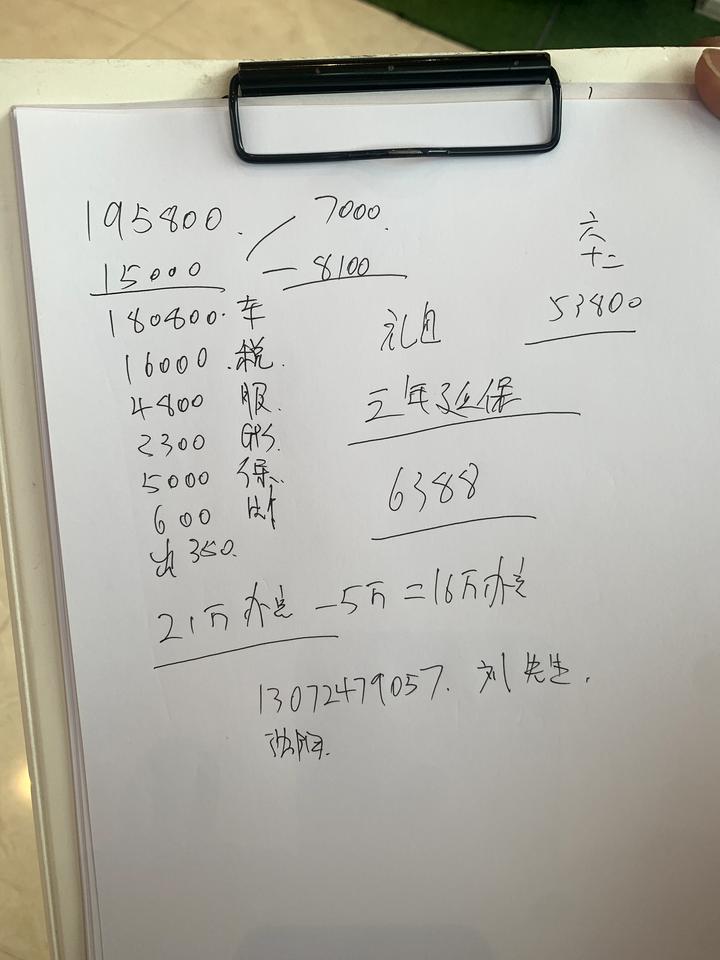 195800. 7000.
15000 — 8100
六
十二
53800
180800. 车
16000. 税.
4800 服.
2300 GPS.
5000 保.
600
出350.
礼
三年延保
6388
21万办完 - 5万 = 16万办完
13072479057. 刘先生.
沈阳.